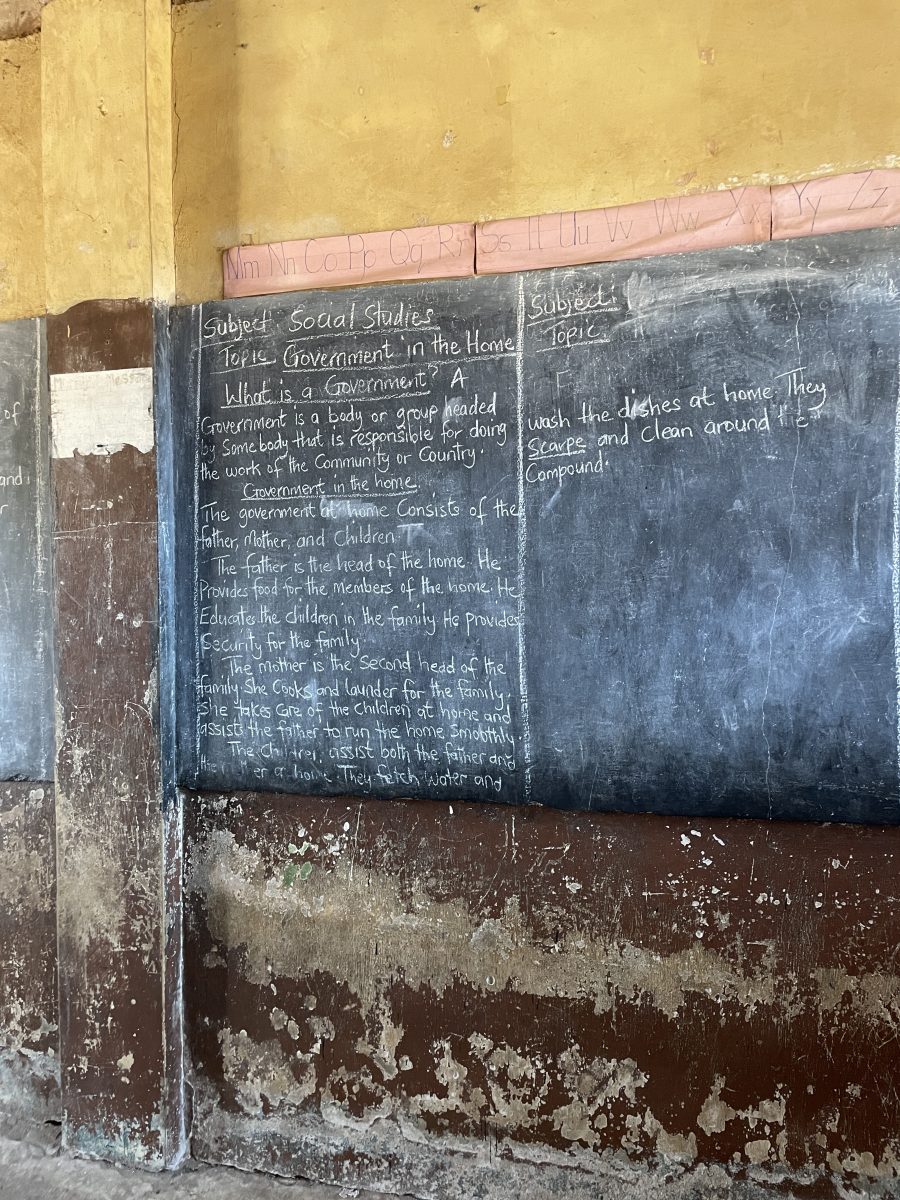 Mm Nn Oo Pp Qq Rr Ss Tt Uu Vv Ww Xx Yy Zz
Subject Social Studies
Topic Government in the Home
What is a Government? A
Government is a body or group headed
by Somebody that is responsible for doing
the work of the Community or Country.
Government in the home.
The government at home Consists of the
father, Mother, and Children
The father is the head of the home. He
Provides food for the members of the home. He
Educates the children in the family. He provides
Security for the family.
The mother is the Second head of the
family. She Cooks and launder for the family.
She takes care of the Children at home and
assists the father to run the home Smoothly.
The Children assist both the father and
They fetch water and
Subject:
Topic
wash the dishes at home. They
Scarpe and clean around
Compound.
of
and
r